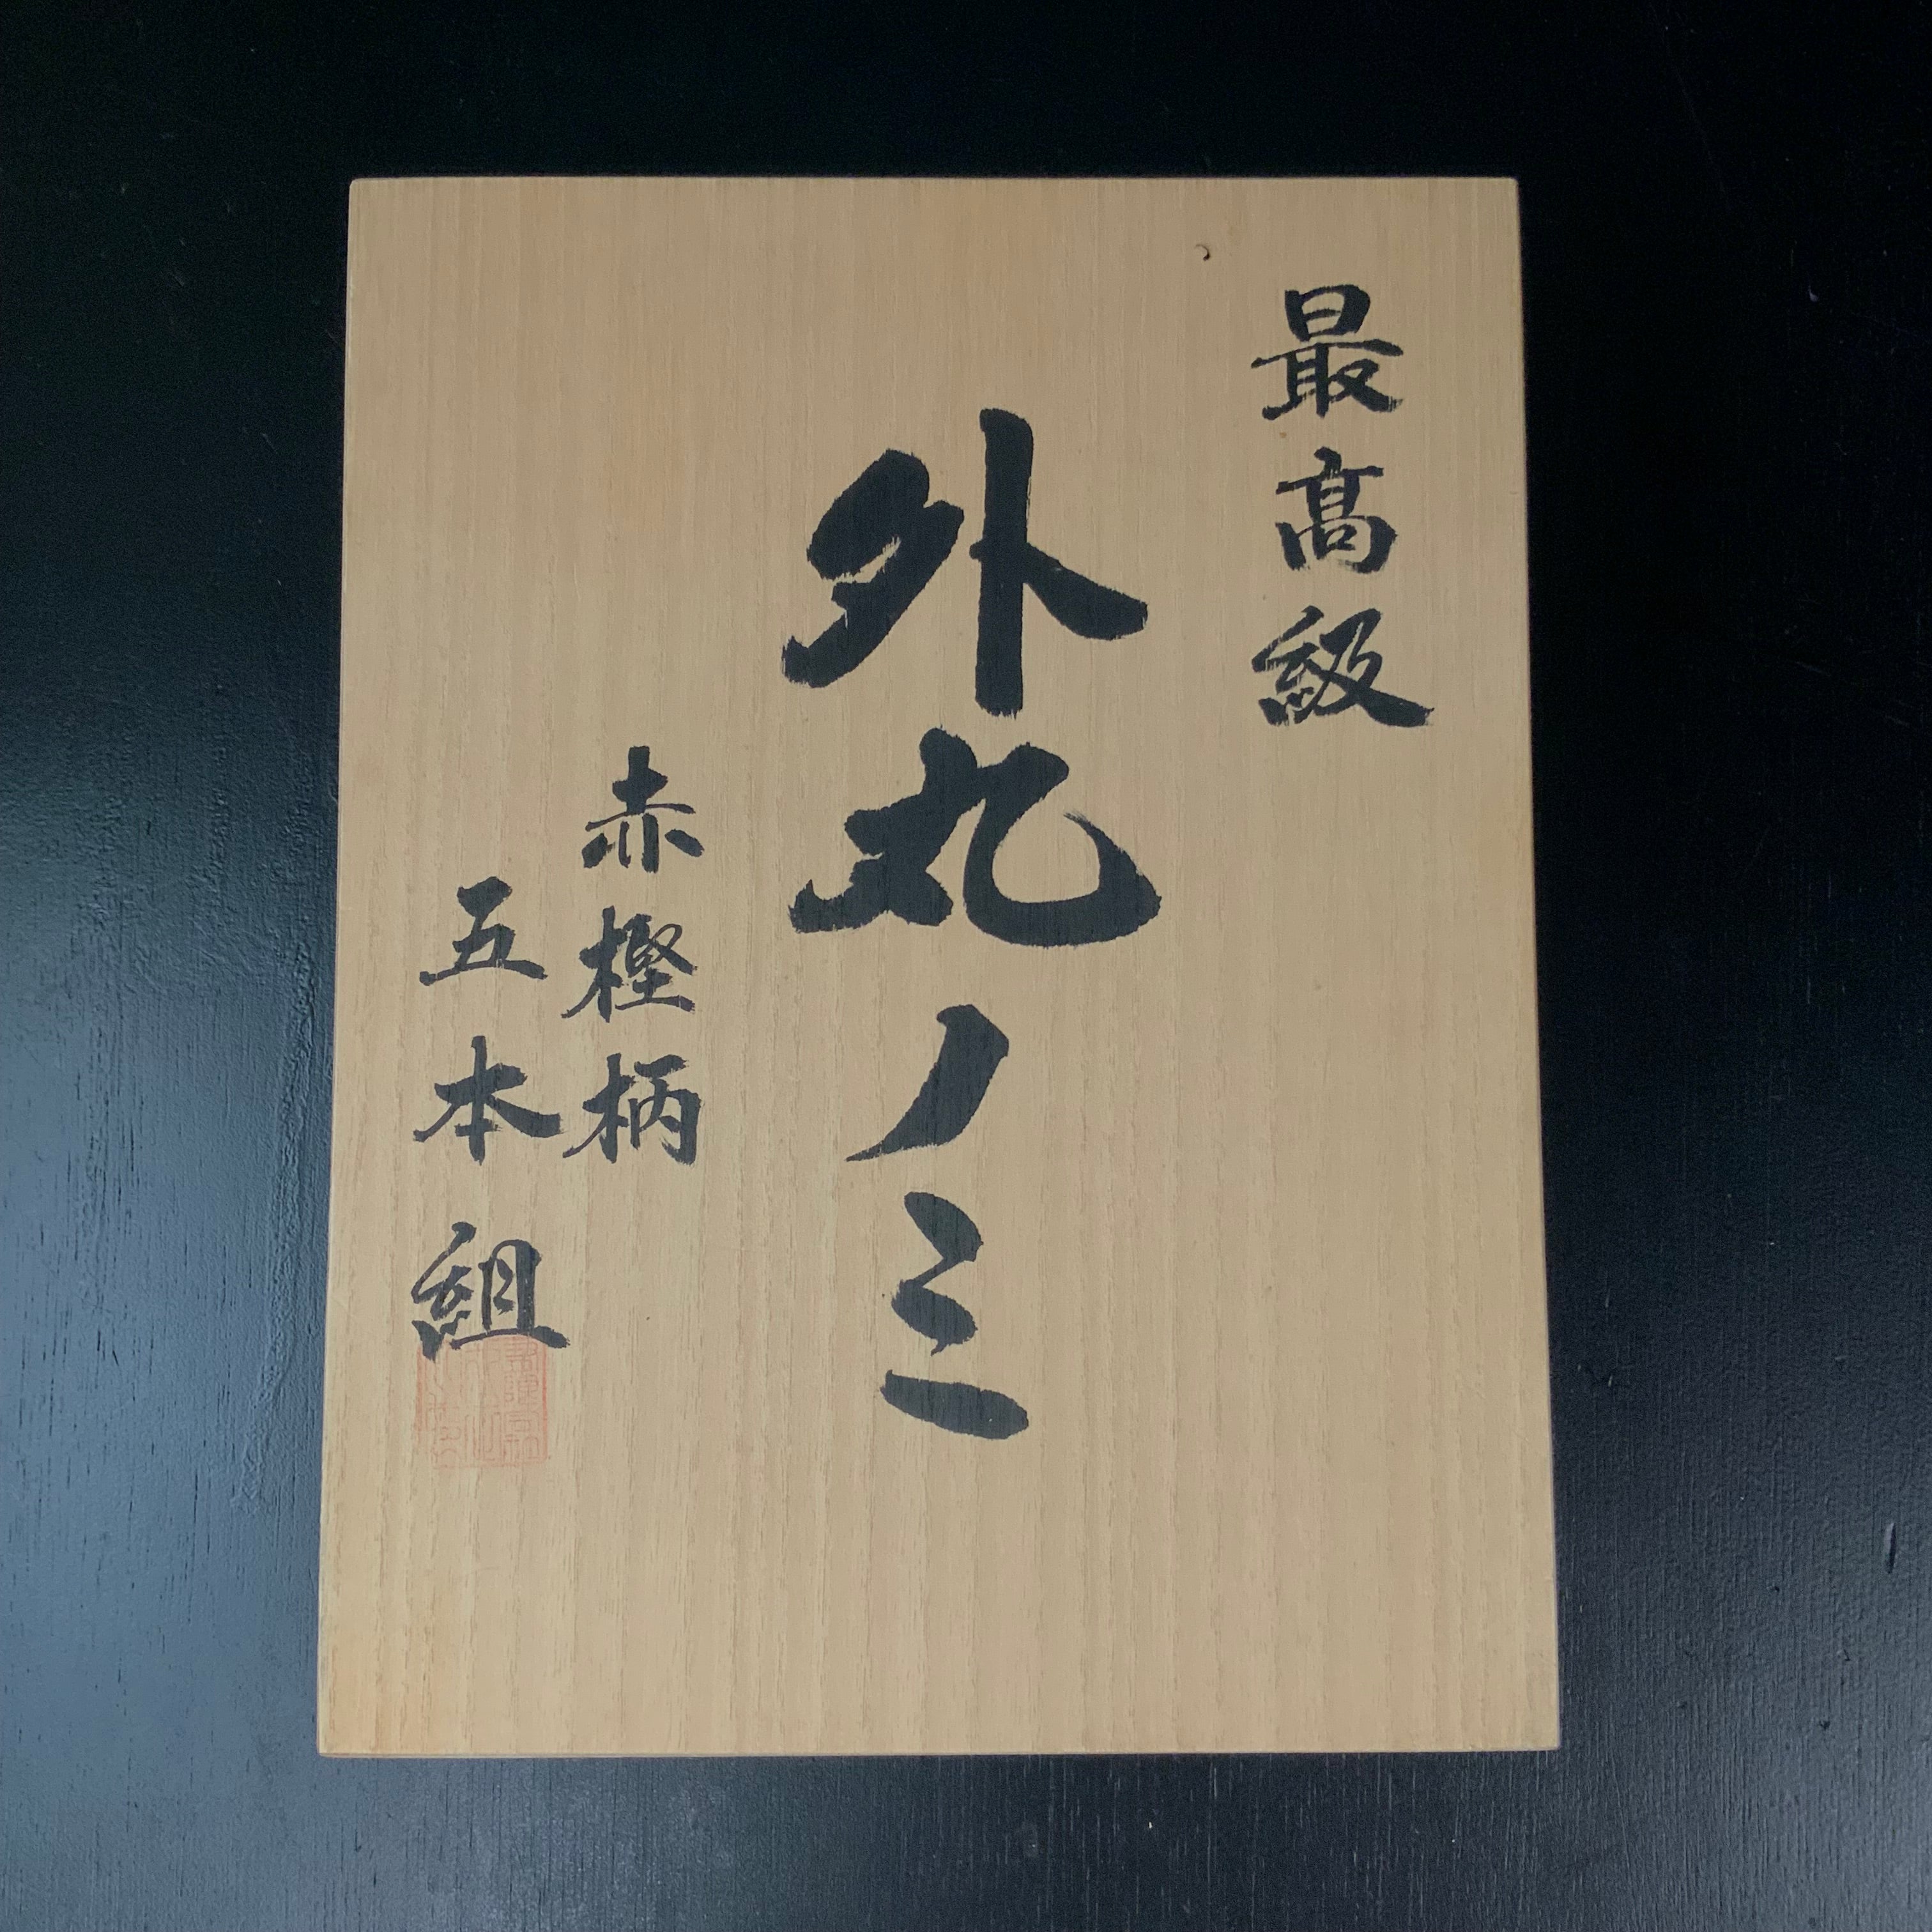 最髙級
外丸ノミ
赤樫柄
五本組